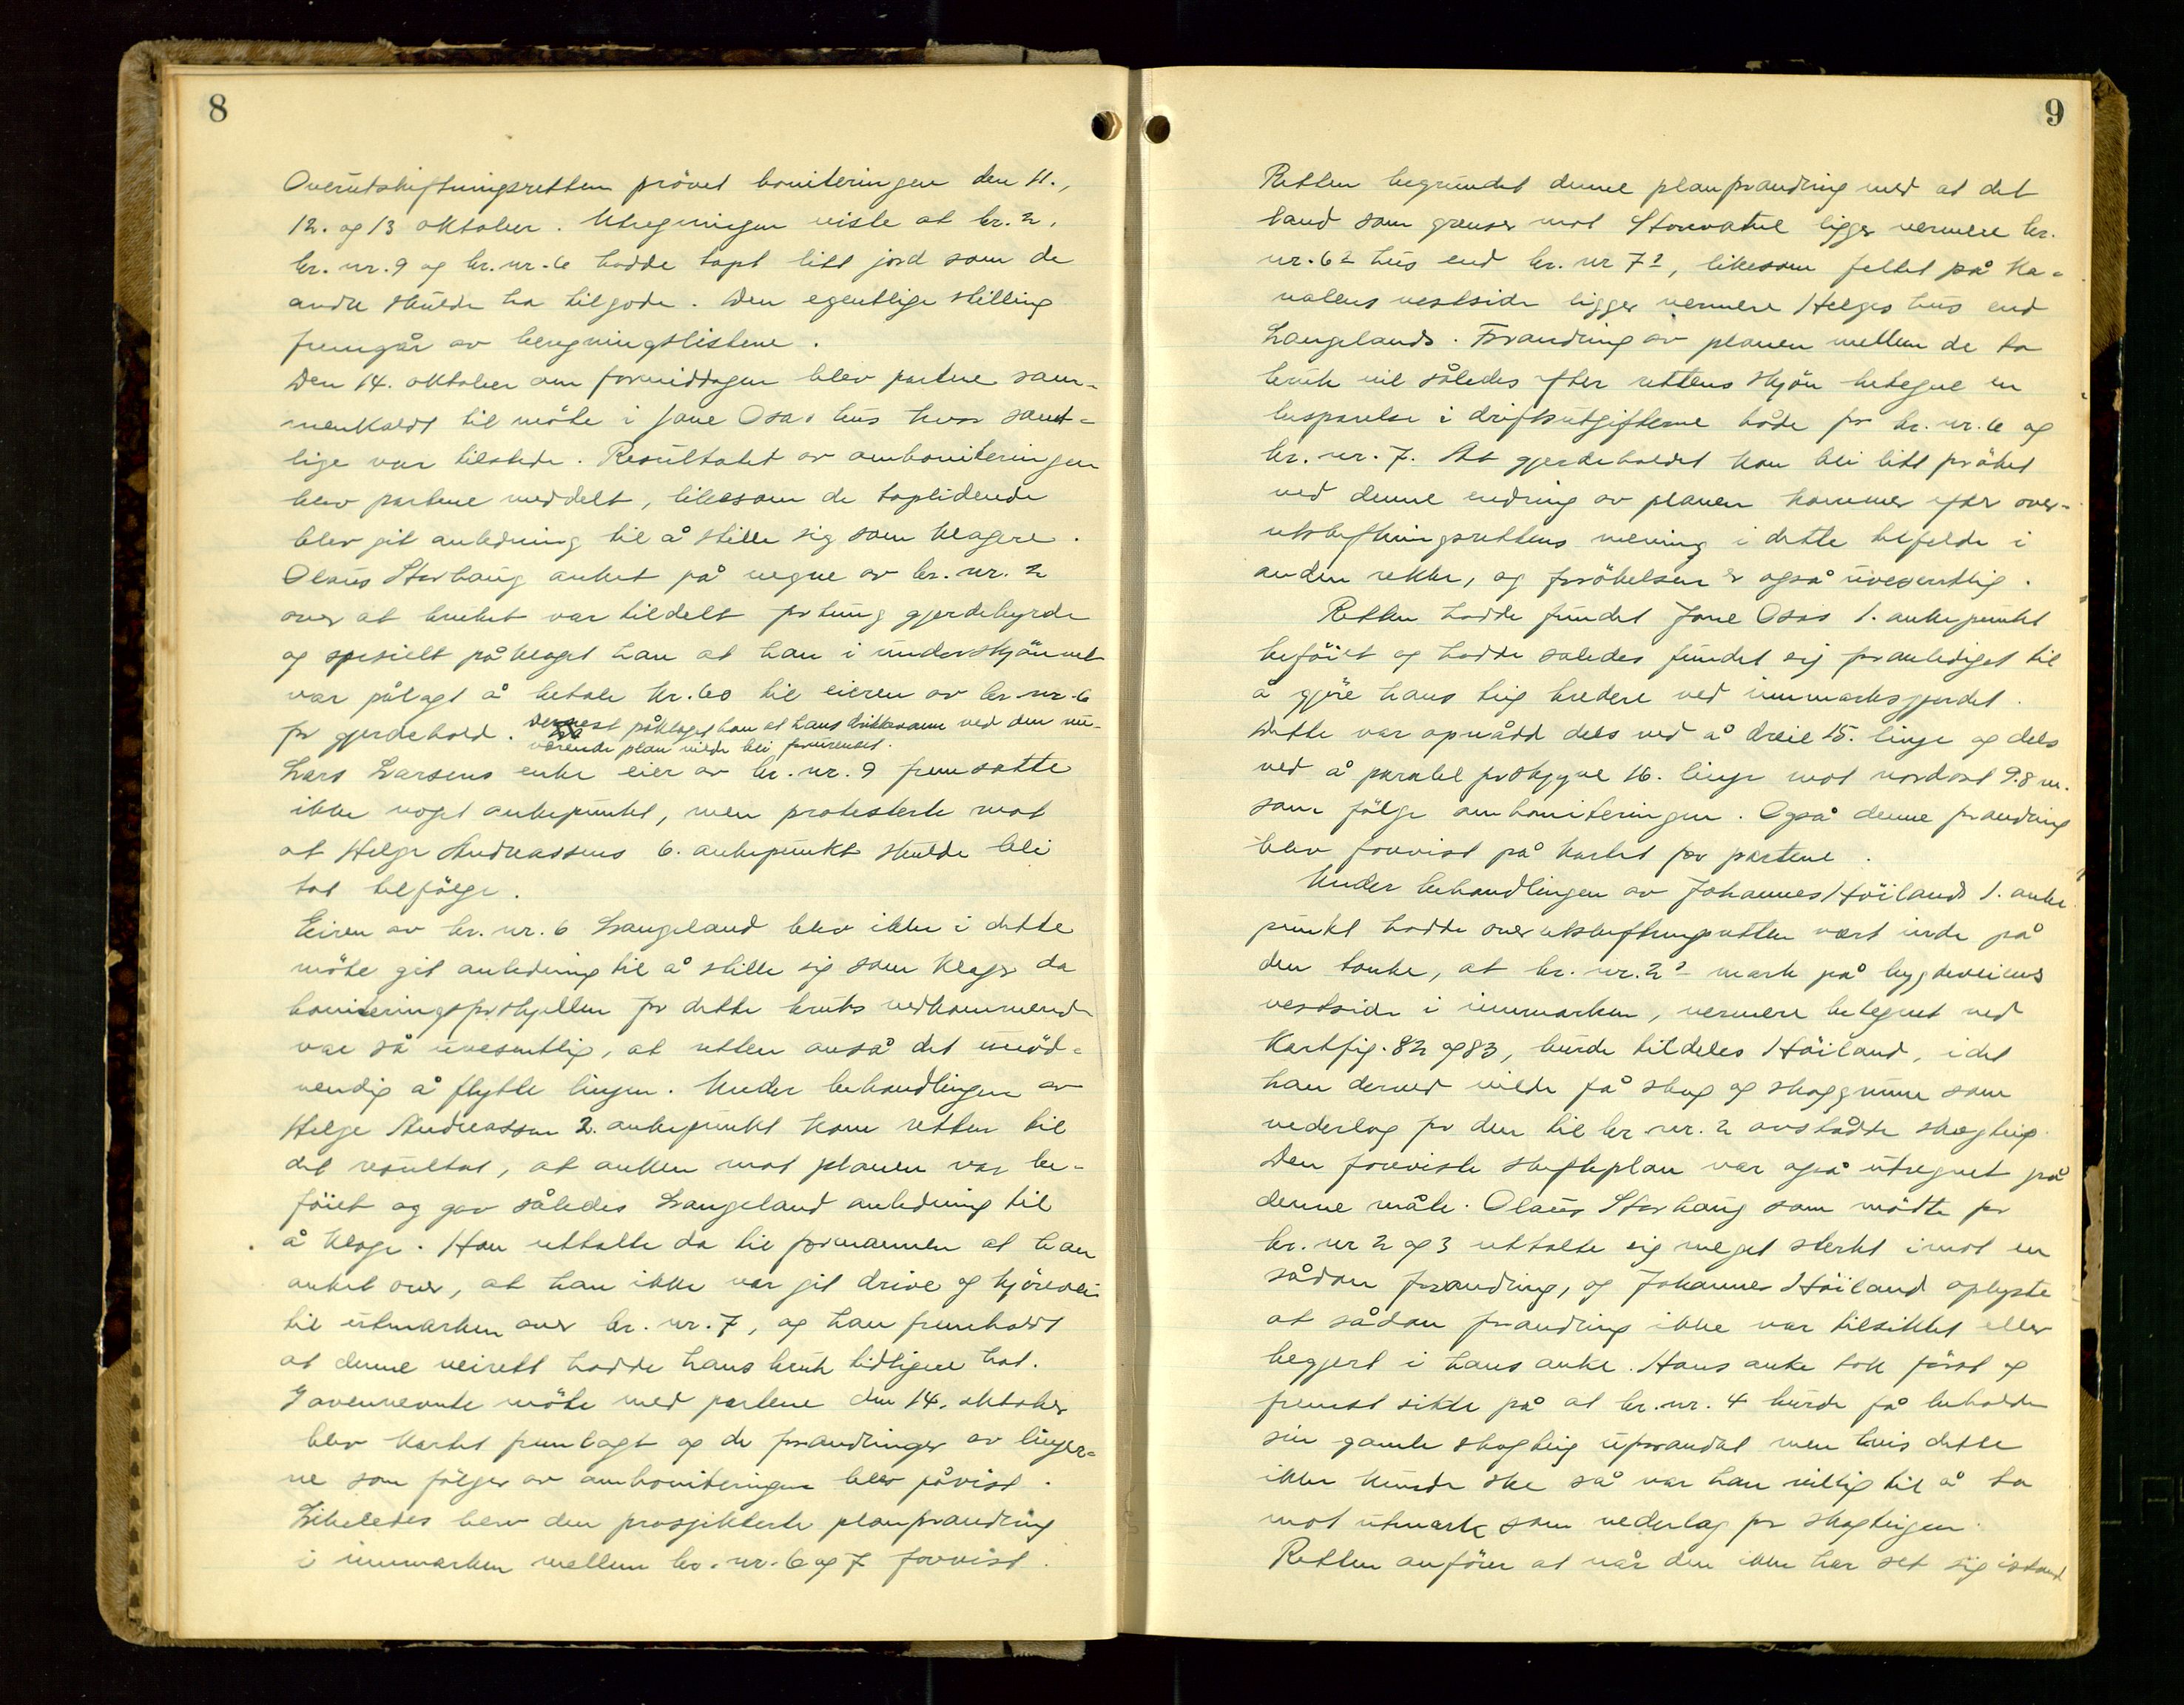 8
Overutskiftningsretten prövet boniteringen den 11.,
12. og 13 oktober. Utregningen viste at br. 2,
br. nr. 9 og br. nr. 6 hadde tapt litt jord som de
andre skulde ha tilgode. Den egentlige stilling
fremgår av beregningslistene.
Den 14. oktober om formiddagen blev partene sam-
menkaldt til möte i Jone Osas hus hvor samt-
lige var tilstede. Resultatet av omboniteringen
blev partene meddelt, likesom de taplidende
blev git anledning til å stille sig som klagere.
Olaus Storhaug anket på vegne av br. nr. 2
over at bruket var tildelt for tung gjerdebyrde
og spesielt påklaget han at han i underskjönnet
var pålagt å betale kr. 60 til eieren av br. nr. 6
for gjerdehold. Dernest påklaget han at hans drikkevann ved den nu-
værende plan vilde bli forurenset.
Lars Larsens enke eier av br. nr. 9 fremsatte
ikke noget ankepunkt, men protesterte mot
at Helge Andreassens 6. ankepunkt skulde bli
tat tilfölge.
Eieren av br. nr. 6 Langeland blev ikke i dette
möte git anledning til å stille sig som klager da
boniteringsforskjellen for dette bruks vedkommende
var så uvesentlig, at retten anså det unöd-
vendig å flytte linjen. Under behandlingen av
Helge Andreassen 2. ankepunkt kom retten til
det resultat, at anken mot planen var be-
föiet og gav således Langeland anledning til
å klage. Han uttalte da til formannen at han
anket over, at han ikke var git drive og kjörevei
til utmarken over br. nr. 7, og han fremholdt
at denne veirett hadde hans bruk tidligere hat.
I ovennevnte möte med partene den 14. oktober
blev kartet fremlagt og de forandringer av linjer-
ne som fölger av omboniteringen blev påvist.
Likeledes blev den prosjekterte planforandring
i innmarken mellem br. nr. 6 og 7 forevist.
9
Retten begrundet denne planforandring med at det
land som grenser mot Storvatne ligger nermere br.
nr. 6² hus end br. nr 7², likesom feltet på Ka-
nalens vestside ligger nermere Helges hus end
Langelands. Forandring av planen mellem de to
bruk vil således efter rettens skjön betegne en
besparelse i driftsutgifterne både for br. nr. 6 og
br. nr. 7. At gjerdeholdet kan bli litt forøket
ved denne endring av planen kommer efter over-
utskiftningsrettens mening i dette tilfelde i
anden rekke, og forökelsen er også uvesentlig.
Retten hadde fundet Jone Osas 1. ankepunkt
beföiet og hadde saledes fundet sig foranlediget til
å gjöre hans teig bredere ved innmarksgjerdet.
Dette var opnådd dels ved å dreie 15. linje og dels
ved å paralel forskyve 16. linje mot nordost 9.8 m.
som fölge omboniteringen. Også denne forandring
blev forevist på kartet for partene.
Under behandlingen av Johannes Höilands 1. anke
punkt hadde overutskiftningsretten vært inde på
den tanke, at br. nr. 2² mark på bygdeveiens
vestside i innmarken, nermere betegnet ved
Kartfig. 82 og 83, burde tildeles Höiland, idet
han derved vilde få skog og skoggrunn som
vederlag for den til br. nr. 2 avståtte skogteig.
Den foreviste skifteplan var også utregnet på
denne måte. Olaus Storhaug som mödte for
br. nr 2 og 3 uttalte sig meget sterkt imot en
sådan forandring, og Johannes Höiland oplyste
at sådan forandring ikke var tilsiktet eller
begjert i hans anke. Hans anke tok först og
fremst sikte på at br. nr. 4 burde få beholde
sin gamle skogteig uforandret men hvis dette
ikke kunde ske så var han villig til å ta
mot utmark som vederlag for skogteigen.
Retten anförer at når den ikke har set sig istand